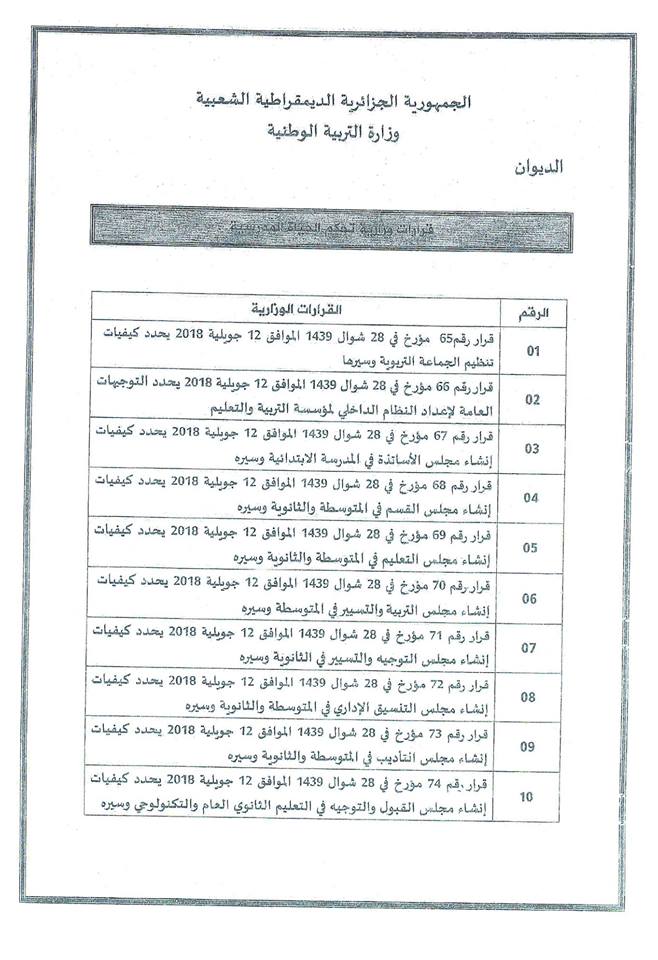 الجمهورية الجزائرية الديمقراطية الشعبية
وزارة التربية الوطنية
الديوان
قرارات وزارية تحكم الحياة المدرسية
الرقم القرارات الوزارية
01 قرار رقم65 مؤرخ في 28 شوال 1439 الموافق 12 جويلية 2018 يحدد كيفيات
تنظيم الجماعة التربوية وسيرها
02 قرار رقم 66 مؤرخ في 28 شوال 1439 الموافق 12 جويلية 2018 يحدد التوجيهات
العامة لإعداد النظام الداخلي لمؤسسة التربية والتعليم
03 قرار رقم 67 مؤرخ في 28 شوال 1439 الموافق 12 جويلية 2018 يحدد كيفيات
إنشاء مجلس الأساتذة في المدرسة الابتدائية وسيره
04 قرار رقم 68 مؤرخ في 28 شوال 1439 الموافق 12 جويلية 2018 يحدد كيفيات
إنشاء مجلس القسم في المتوسطة والثانوية وسيره
05 قرار رقم 69 مؤرخ في 28 شوال 1439 الموافق 12 جويلية 2018 يحدد كيفيات
إنشاء مجلس التعليم في المتوسطة والثانوية وسيره
06 قرار رقم 70 مؤرخ في 28 شوال 1439 الموافق 12 جويلية 2018 يحدد كيفيات
إنشاء مجلس التربية والتسيير في المتوسطة وسيره
07 قرار رقم 71 مؤرخ في 28 شوال 1439 الموافق 12 جويلية 2018 يحدد كيفيات
إنشاء مجلس التوجيه والتسيير في الثانوية وسيره
08 قرار رقم 72 مؤرخ في 28 شوال 1439 الموافق 12 جويلية 2018 يحدد كيفيات
إنشاء مجلس التنسيق الإداري في المتوسطة والثانوية وسيره
09 قرار رقم 73 مؤرخ في 28 شوال 1439 الموافق 12 جويلية 2018 يحدد كيفيات
إنشاء مجلس التأديب في المتوسطة والثانوية وسيره
10 قرار رقم 74 مؤرخ في 28 شوال 1439 الموافق 12 جويلية 2018 يحدد كيفيات
إنشاء مجلس القبول والتوجيه في التعليم الثانوي العام والتكنولوجي وسيره